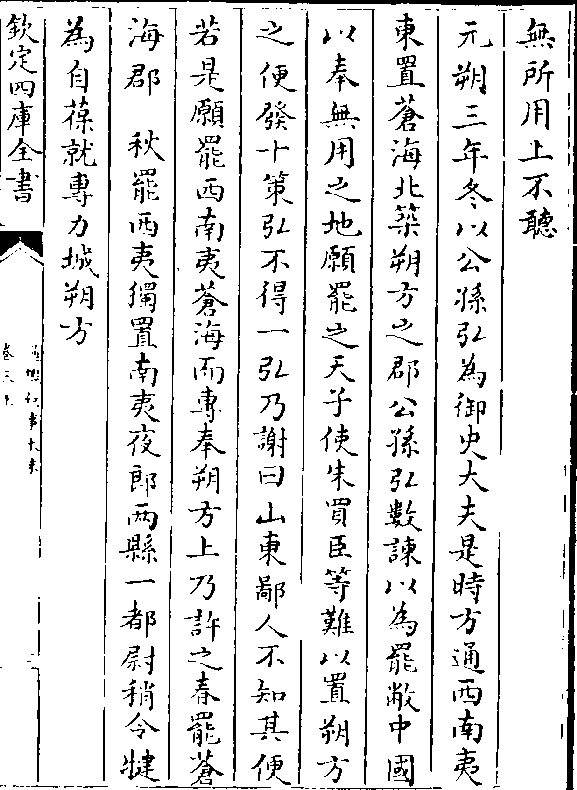 無所用上不聽
元朔三年冬以公孫弘為御史大夫是時方通西南夷
東置蒼海北築朔方之郡公孫弘數諫以為罷敝中國
以奉無用之地願罷之天子使朱買臣等難以置朔方
之便發十策弘不得一弘乃謝曰山東鄙人不知其便
若是願罷西南夷蒼海而專奉朔方上乃許之春罷蒼
海郡　秋罷西夷獨置南夷夜郎兩縣一都尉稍令犍
為自葆就專力城朔方
欽定四庫全書